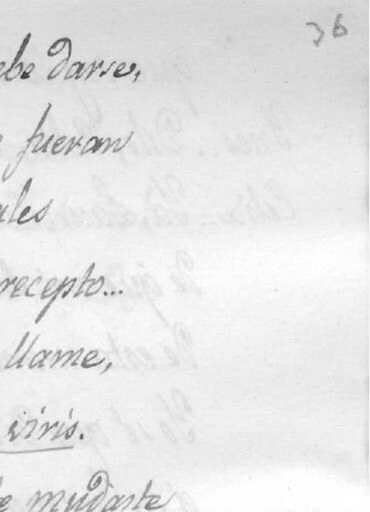 36
ebe darse,
fueran
ales
recepto...
llame,
viris.
e mudaste